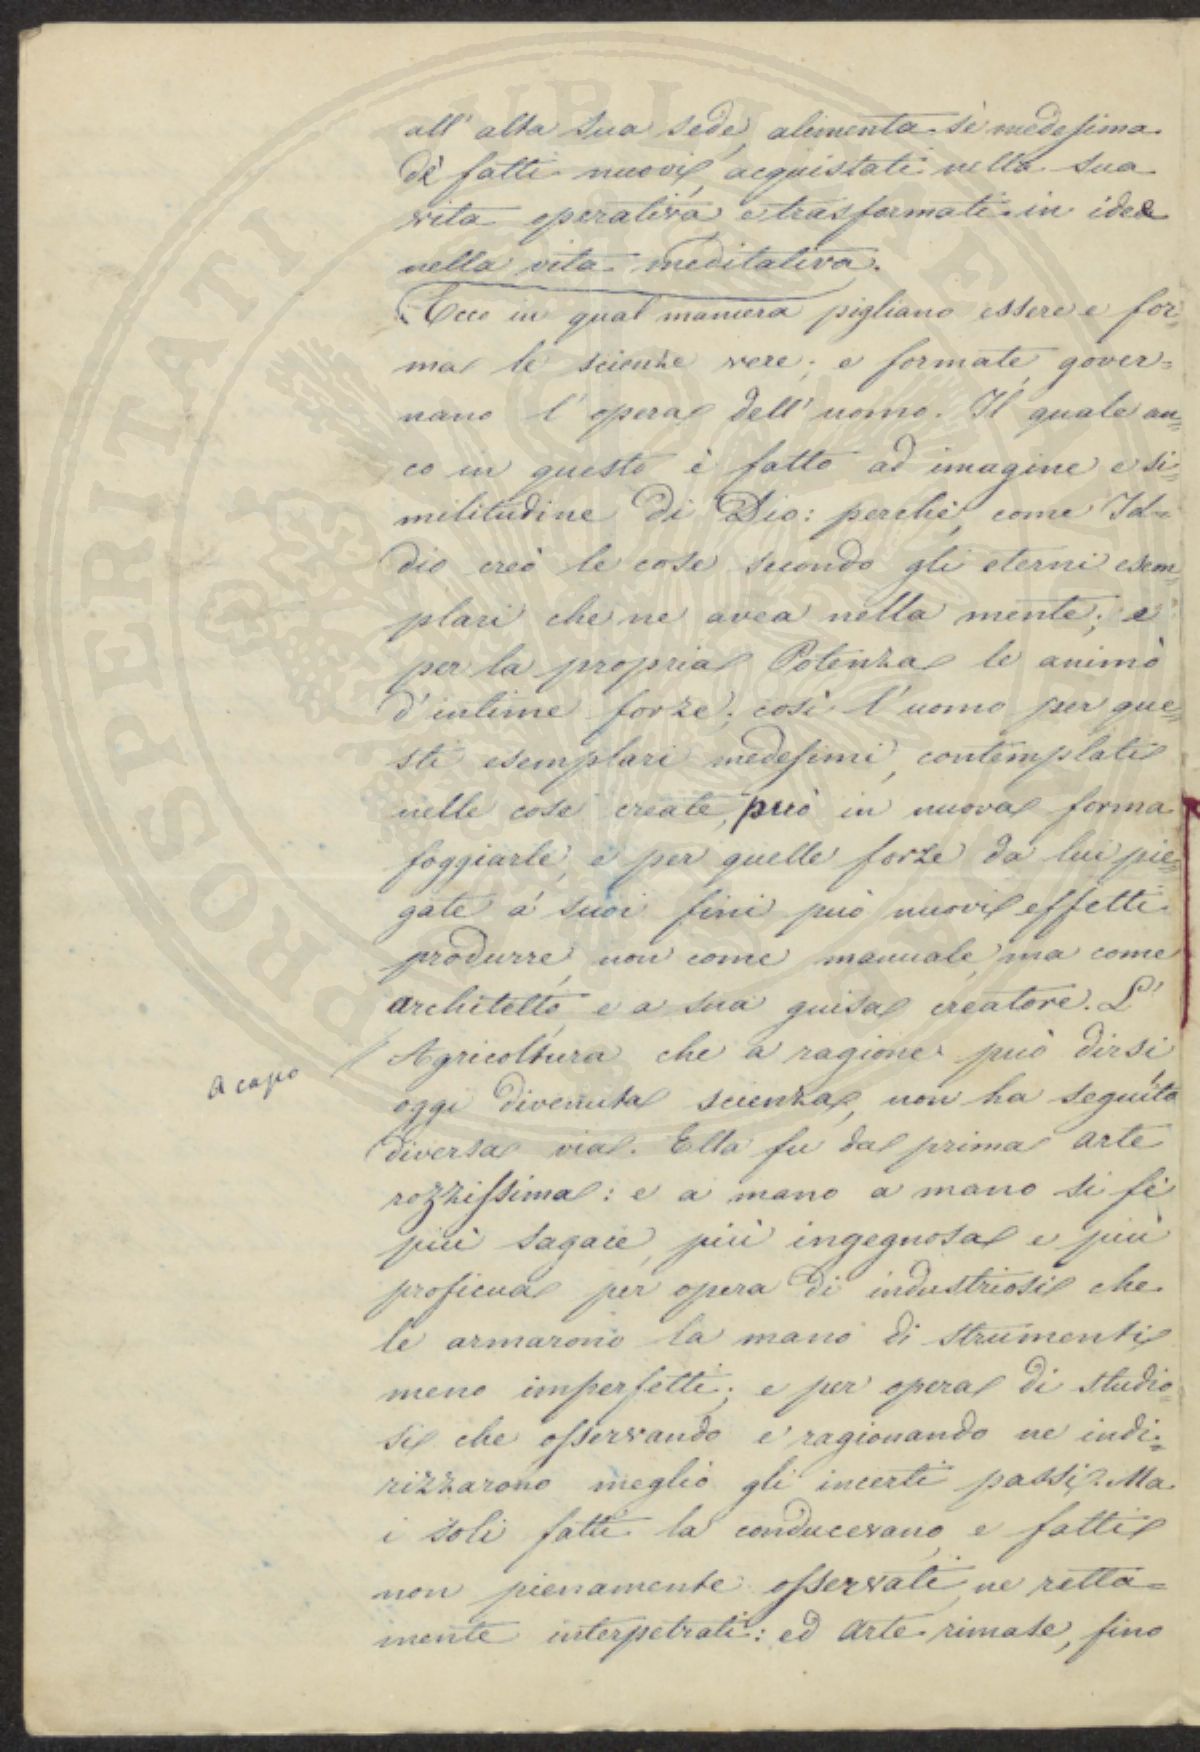 all' alta sua sede, alimenta sè medesima
di fatti nuovi, acquistati nella sua
vita operativa e trasformati in idee
nella vita meditativa.
Ecco in qual maniera pigliano essere e for=
ma le scienze vere; e formate, gover=
nano l'opera dell'uomo. Il quale an=
co in questo è fatto ad imagine e si=
militudine di Dio: perchè, come Id=
dio creò le cose secondo gli eterni esem=
plari che ne avea nella mente; e
per la propria Potenza le animò
d'intime forze; così l'uomo per que=
sti esemplari medesimi, contemplati
nelle cose create, può in nuova forma
foggiarle, e per quelle forze da lui pie=
gate a' suoi fini può nuovi effetti
produrre, non come manuale, ma come
architetto, e a sua guisa creatore. L'
Agricoltura che a ragione può dirsi
A capo
oggi divenuta scienza, non ha seguito
diversa via. Ella fu da prima arte
rozzissima: e a mano a mano si fè
più sagace, più ingegnosa e più
proficua per opera di industriosi che
le armarono la mano di strumenti
meno imperfetti; e per opera di studio=
si che osservando e ragionando ne indi=
rizzarono meglio gli incerti passi. Ma
i soli fatti la conducevano, e fatti
non pienamente osservati, ne retta=
mente interpetrati: ed arte rimase, fino
PROSPERITATI PUBLICAE